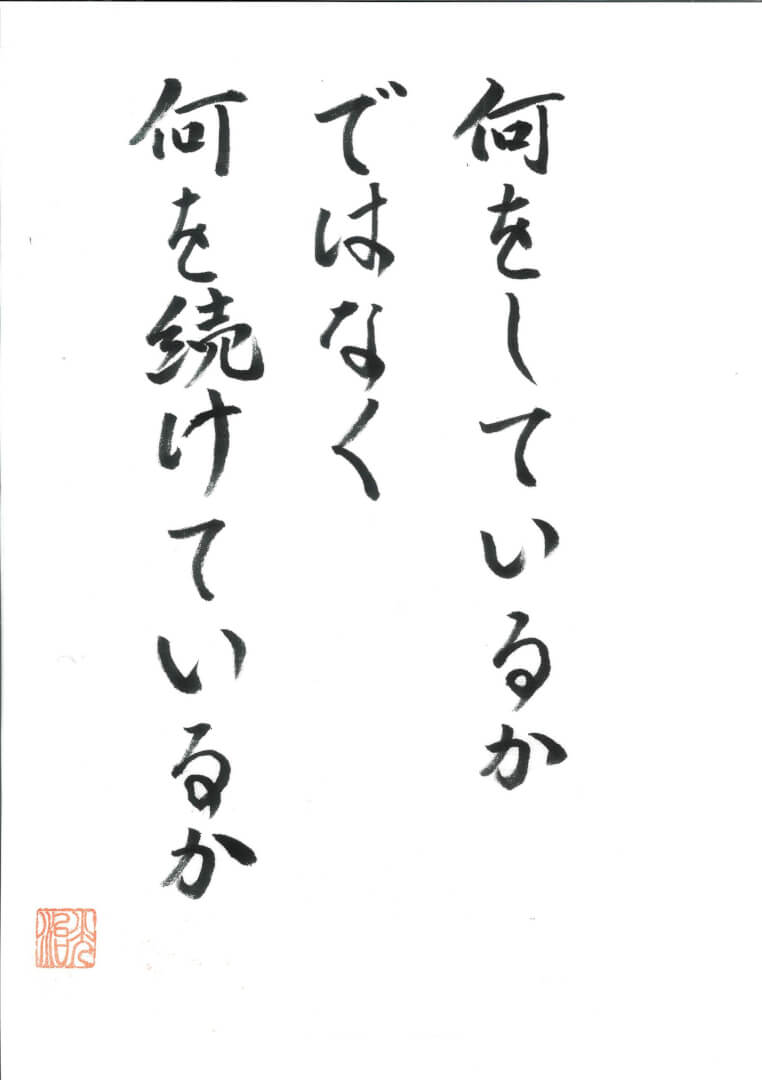 何をしているか
ではなく
何を続けているか